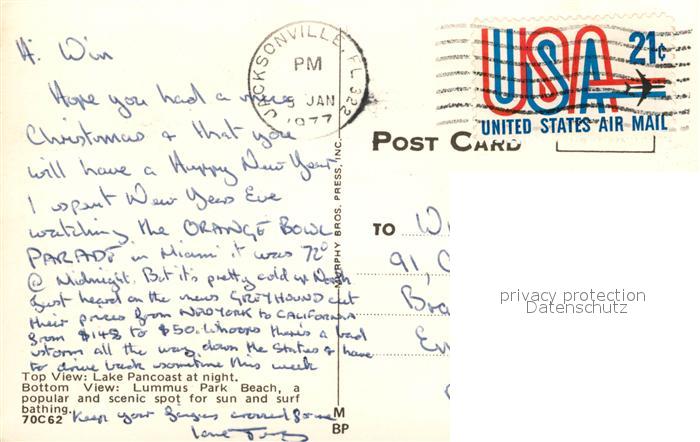 Hi Win
Hope you had a nice
Christmas & that you
will have a Happy New Year
I spent New Years Eve
watching the ORANGE BOWL
PARADE in Miami it was 72°
@ Midnight. But it's pretty cold up North
Just heard on the news GREYHOUND cut
their prices from NEW YORK to CALIFORNIA
from $145 to $50. Whoops there's a bad
storm all the way down the States & have
to drive back sometime this week
Top View: Lake Pancoast at night.
Bottom View: Lummus Park Beach, a
popular and scenic spot for sun and surf
bathing.
70C62 Keep your fingers crossed for me
love
MURPHY BROS. PRESS, INC.
M
BP
JACKSONVILLE, FL 322
PM
5 JAN
1977
USA 21c
UNITED STATES AIR MAIL
POST CARD
TO
91,
privacy protection
Datenschutz